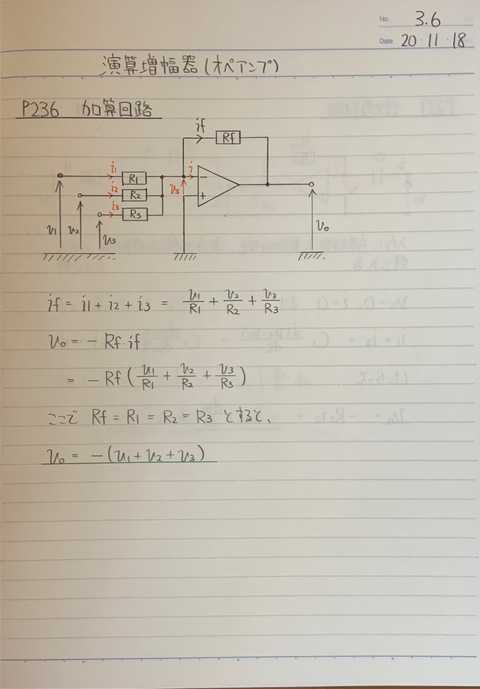 No. 3.6
Date 20・11・18
演算増幅器(オペアンプ)
P236 加算回路
if
Rf
i1 R1
i2 R2
i3 R3
i
−
+
vs
v1 v2 v3
vo
if = i1 + i2 + i3 = v1/R1 + v2/R2 + v3/R3
vo = − Rf if
= − Rf ( v1/R1 + v2/R2 + v3/R3 )
ここで Rf = R1 = R2 = R3 とすると、
vo = −(v1 + v2 + v3)